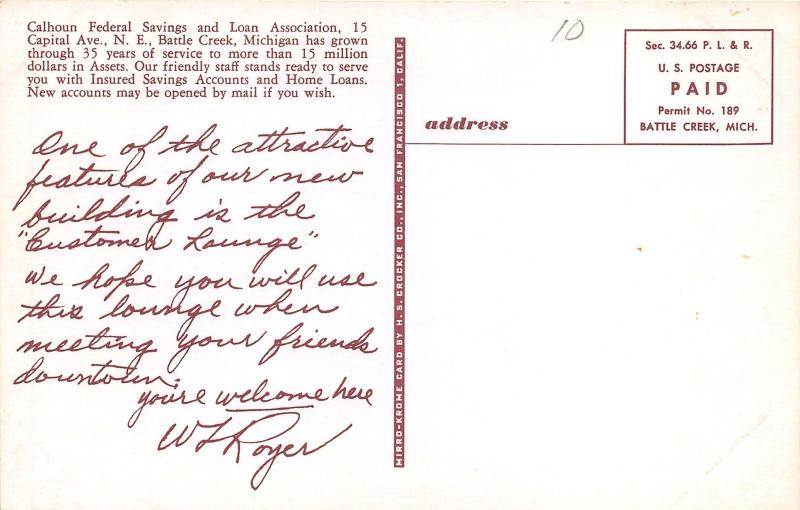 Calhoun Federal Savings and Loan Association, 15
Capital Ave., N. E., Battle Creek, Michigan has grown
through 35 years of service to more than 15 million
dollars in Assets. Our friendly staff stands ready to serve
you with Insured Savings Accounts and Home Loans.
New accounts may be opened by mail if you wish.
One of the attractive
features of our new
building is the
"Customer Lounge"
We hope you will use
this lounge when
meeting your friends
downtown.
you're welcome here
WL Royer
MIRRO-KROME CARD BY H. S. CROCKER CO., INC., SAN FRANCISCO 1, CALIF.
10
address
Sec. 34.66 P. L. & R.
U. S. POSTAGE
PAID
Permit No. 189
BATTLE CREEK, MICH.